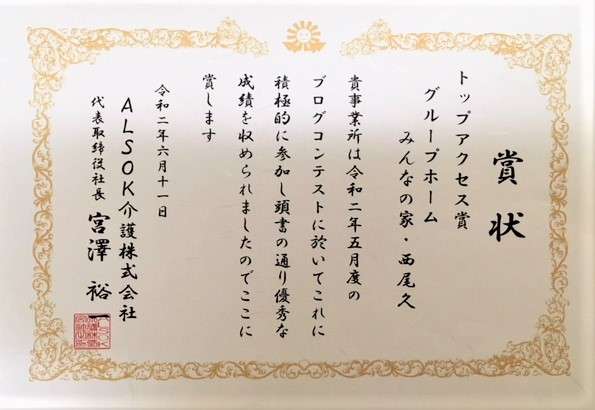 賞状
トップアクセス賞
グループホーム
みんなの家・西尾久
貴事業所は令和二年五月度の
ブログコンテストに於いてこれに
積極的に参加し頭書の通り優秀な
成績を収められましたのでここに
賞します
令和二年六月十一日
ALSOK介護株式会社
代表取締役社長 宮澤裕一